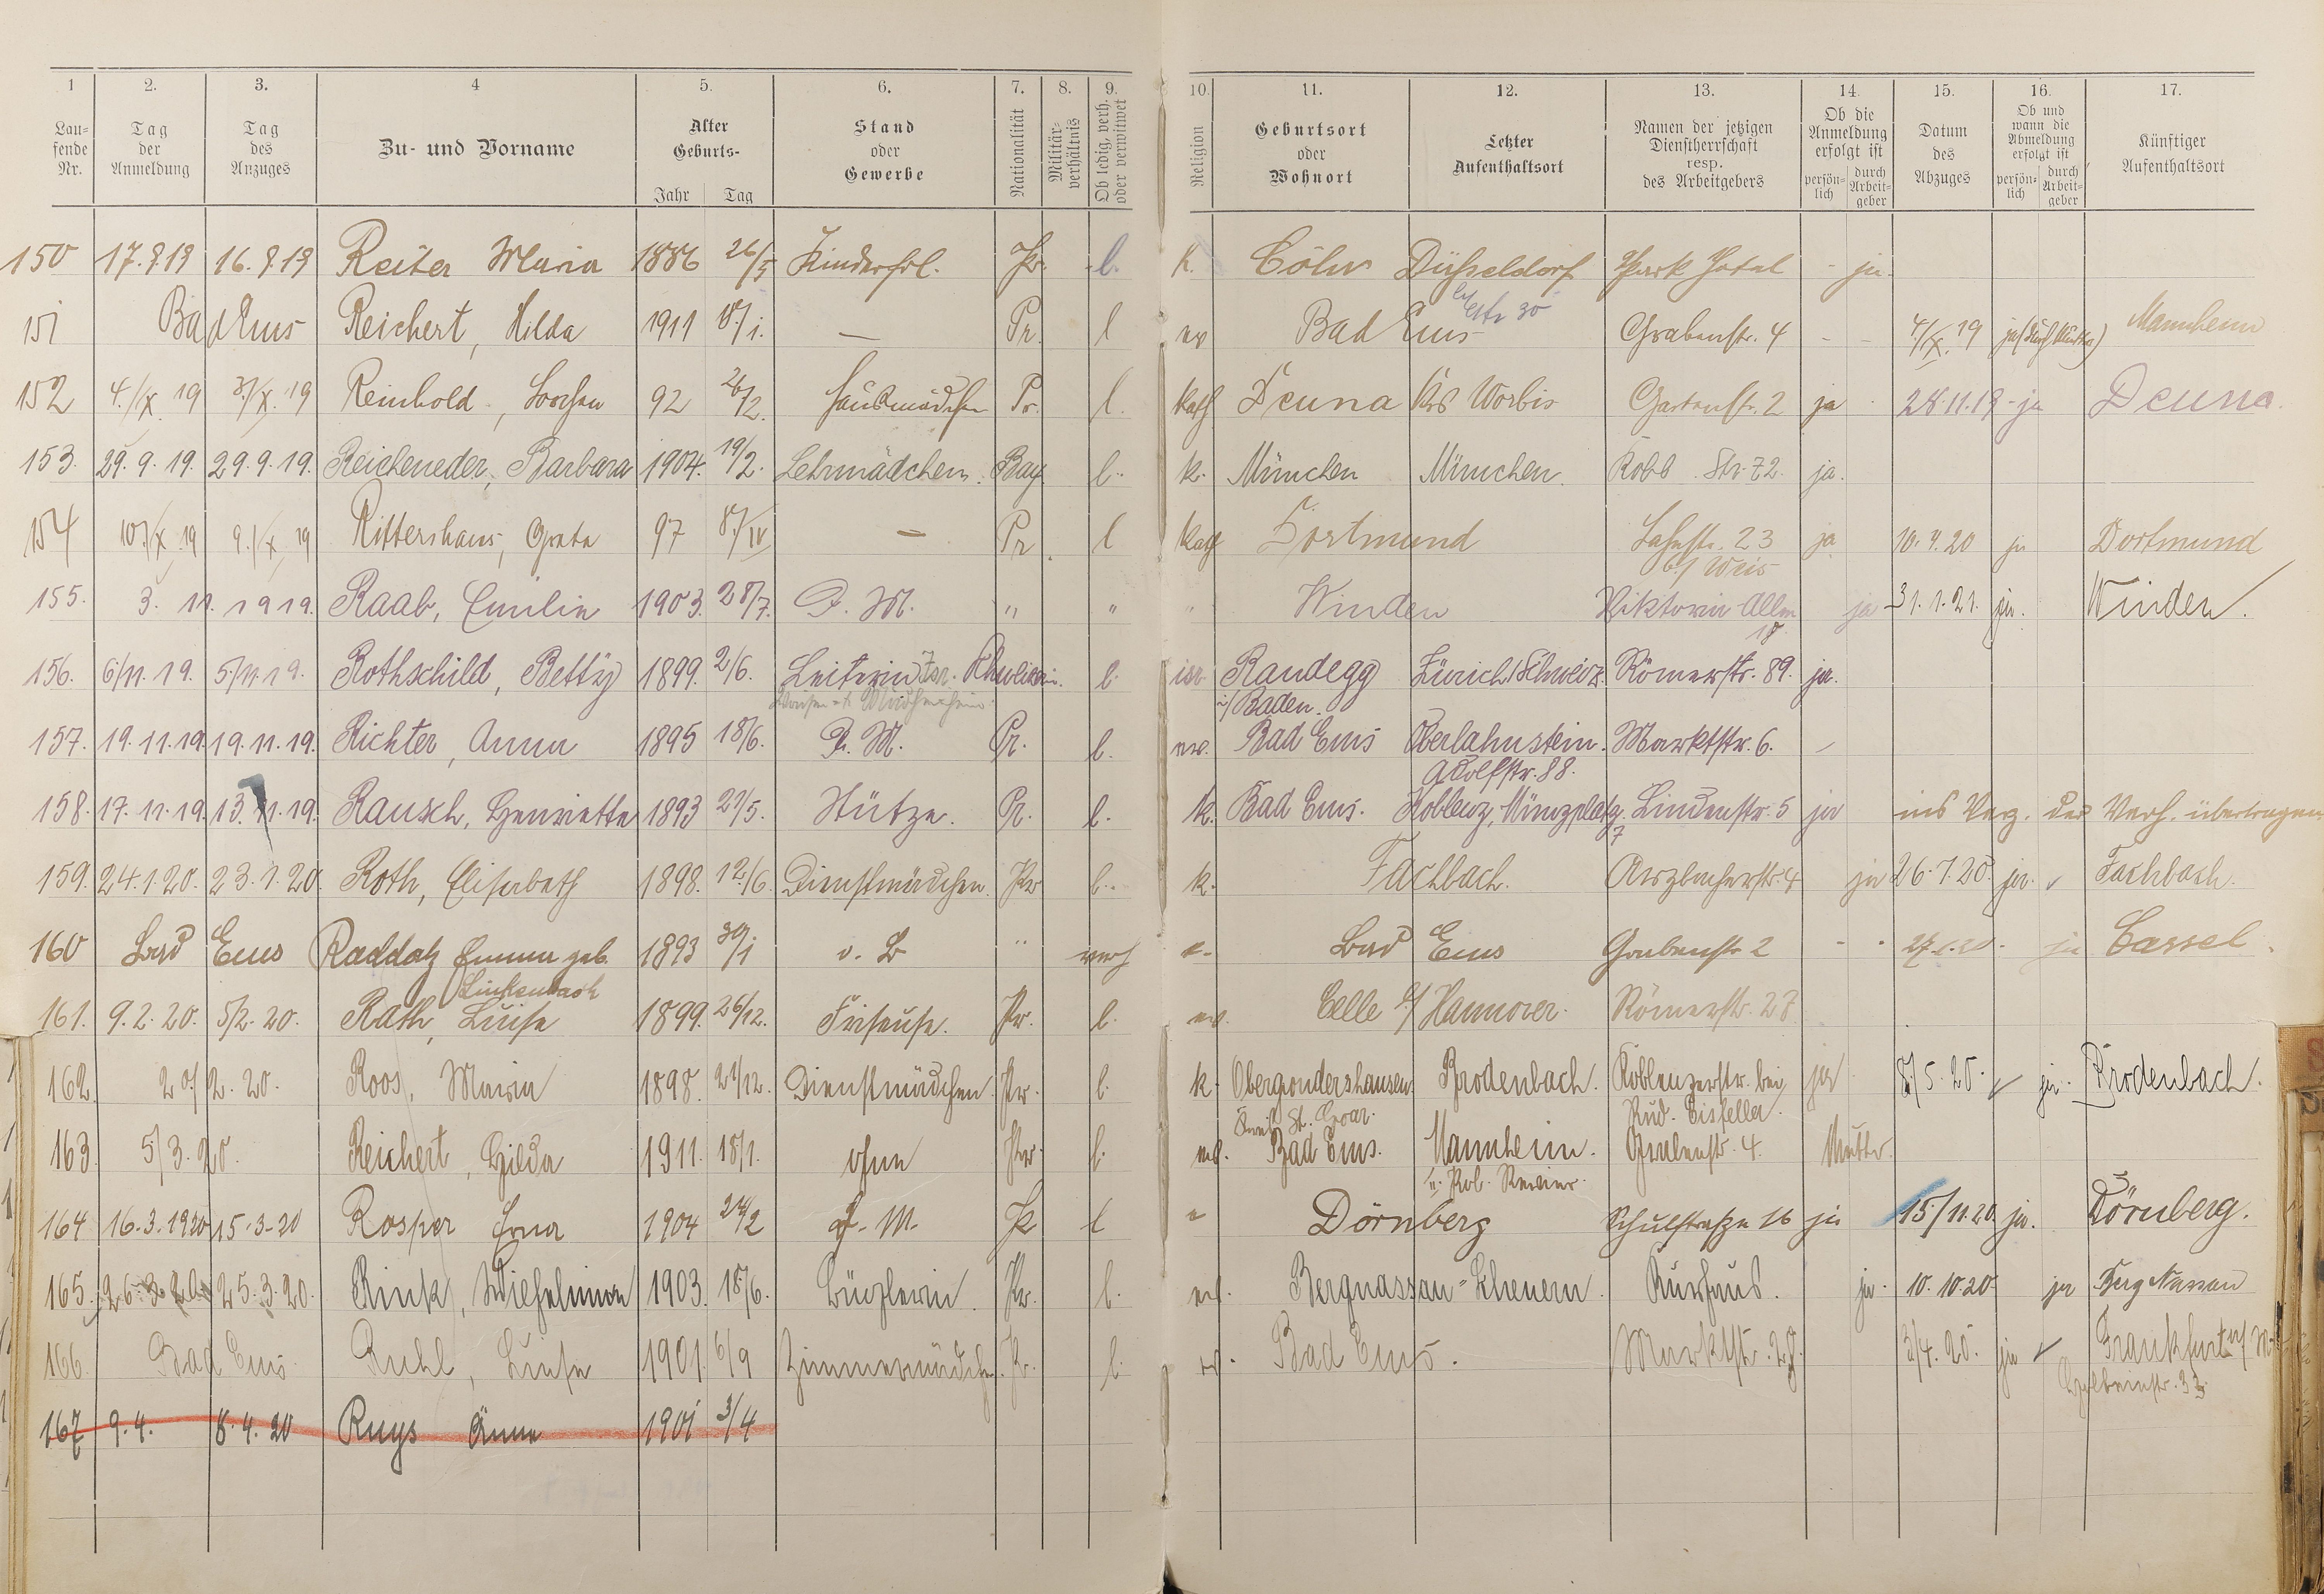 1 2. 3. 4 5. 6. 7. 8. 9. 10. 11. 12. 13. 14. 15. 16. 17.
Lau-
fende
Nr.
Tag
der
Anmeldung
Tag
des
Anzuges
Zu- und Vorname
Alter
Geburts-
Jahr Tag
Stand
oder
Gewerbe
Nationalität
Militär-
verhältnis
Ob ledig, verh.
oder verwitwet
Religion
Geburtsort
oder
Wohnort
Letzter
Aufenthaltsort
Namen der jetzigen
Dienstherrschaft
resp.
des Arbeitgebers
Ob die
Anmeldung
erfolgt ist
persön-
lich
durch
Arbeit-
geber
Datum
des
Abzuges
Ob und
wann die
Abmeldung
erfolgt ist
persön-
lich
durch
Arbeit-
geber
Künftiger
Aufenthaltsort
150 17.9.19 16.9.19 Reiter Maria 1886 26/5 Kinderfrl. Pr. l. k. Cöln Düsseldorf Park Hotel - ja.
151 Bad Ems Reichert, Hilda 1911 18./1. — Pr. l ev Bad Ems Grabenstr. 4 - - 4./IX.19 Mannheim
152 4./IX 19 3./IX.19 Reinhold, 92 26/2. Hausmädchen Pr. l. kath Deuna Krs Worbis Gartenstr. 2 ja 28.11.19 - ja Deuna.
153. 29.9.19. 29.9.19. Reicheneder, Barbara 1904. 19/2. Lehrmädchen. Bay l. k. München München. Str. 72. ja.
154 10./X 19 9./X 19 Rittershaus, Greta 97 8./IV — Pr. l kath Dortmund Lahnstr. 23 ja 10.4.20 ja Dortmund
b/ Weis
155. 3. 11. 1919. Raab, Emilie 1903. 28/7. D. M. " " " Winden Viktoria Allee ja 31.1.21. ja. Winden.
18.
156. 6/11.19. 5/11.19. Rothschild, Betty 1899. 2/6. Leiterin Isr. l. isr. Randegg Zürich/Schweiz. Römerstr. 89. ja.
i/ Baden.
157. 19.11.19. 19.11.19. Richter, Anna 1895 18/6. D. M. Pr. l. ev. Bad Ems Oberlahnstein. Marktstr. 6. -
Adolfstr. 88.
158. 17.11.19. 13.11.19. Rausch, Henriette 1893 21/5. Stütze. Pr. l. k. Bad Ems. Koblenz, Münzplatz Lindenstr. 5 ja ins Verz. der Verh. übertragen
7
159. 24.1.20. 23.1.20. Roth, Elisabeth 1898. 12./6. Dienstmädchen. Pr l. k. Fachbach. Arzbacherstr. 4 ja 26.7.20. ja. Fachbach.
160 Bad Ems Raddatz Emma geb. 1893 30/1 o. B " verh e. Bad Ems Grabenstr 2 - - ja Cassel.
Linkenbach
161. 9.2.20. 5/2.20. Rath, Luise 1899. 26/12. Friseuse. Pr. l. ev. Celle b/ Hannover. Römerstr. 27.
162. 20/2.20. Roos, Maria 1898. 21/12. Dienstmädchen Pr. l. k. Obergondershausen Brodenbach. Koblenzerstr. bei ja 8/5.20. ja. Brodenbach.
Kreis St. Goar. Rud. Eisfeller.
163. 5/3.20. Reichert, Hilda 1911. 18/1. ohne Pr. l. ev. Bad Ems. Mannheim. Grabenstr. 4. Mutter.
164 16.3.1920 15.3.20 Rosper Erna 1904 24/2 D. M. Pr l e Dörnberg Schulstraße 16 ja 15/11.20 ja. Dörnberg.
165. 26.3.20. 25.3.20. Rink, Wilhelmine 1903. 18/6. Büglerin. Pr. l. ev. Bergnassau-Scheuern. Kurhaus. ja. 10.10.20. ja Berg Nassau
166. Bad Ems. Ruhl, Luise 1901. 6/9 Zimmermädchen. Pr. l. ev. Bad Ems. Marktstr. 28. 3/4.20. ja Frankfurt a/ M.
167 9.4. 8.4.20 Ruys Änne 1901 3/4